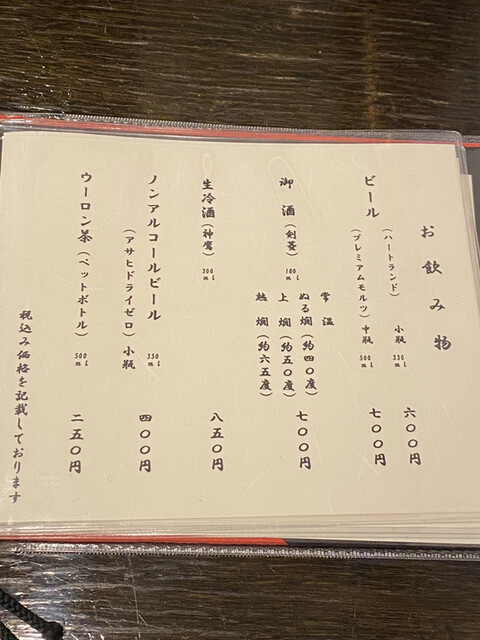 お飲み物
ビール（ハートランド） 小瓶 330㎖ 六〇〇円
（プレミアムモルツ） 中瓶 500㎖ 七〇〇円
御酒（剣菱） 180㎖ 七〇〇円
常温
ぬる燗（約四〇度）
上燗（約五〇度）
熱燗（約六五度）
生冷酒（神鷹） 300㎖ 八五〇円
ノンアルコールビール 350㎖ 四〇〇円
（アサヒドライゼロ） 小瓶
ウーロン茶（ペットボトル） 500㎖ 二五〇円
税込み価格を記載しております